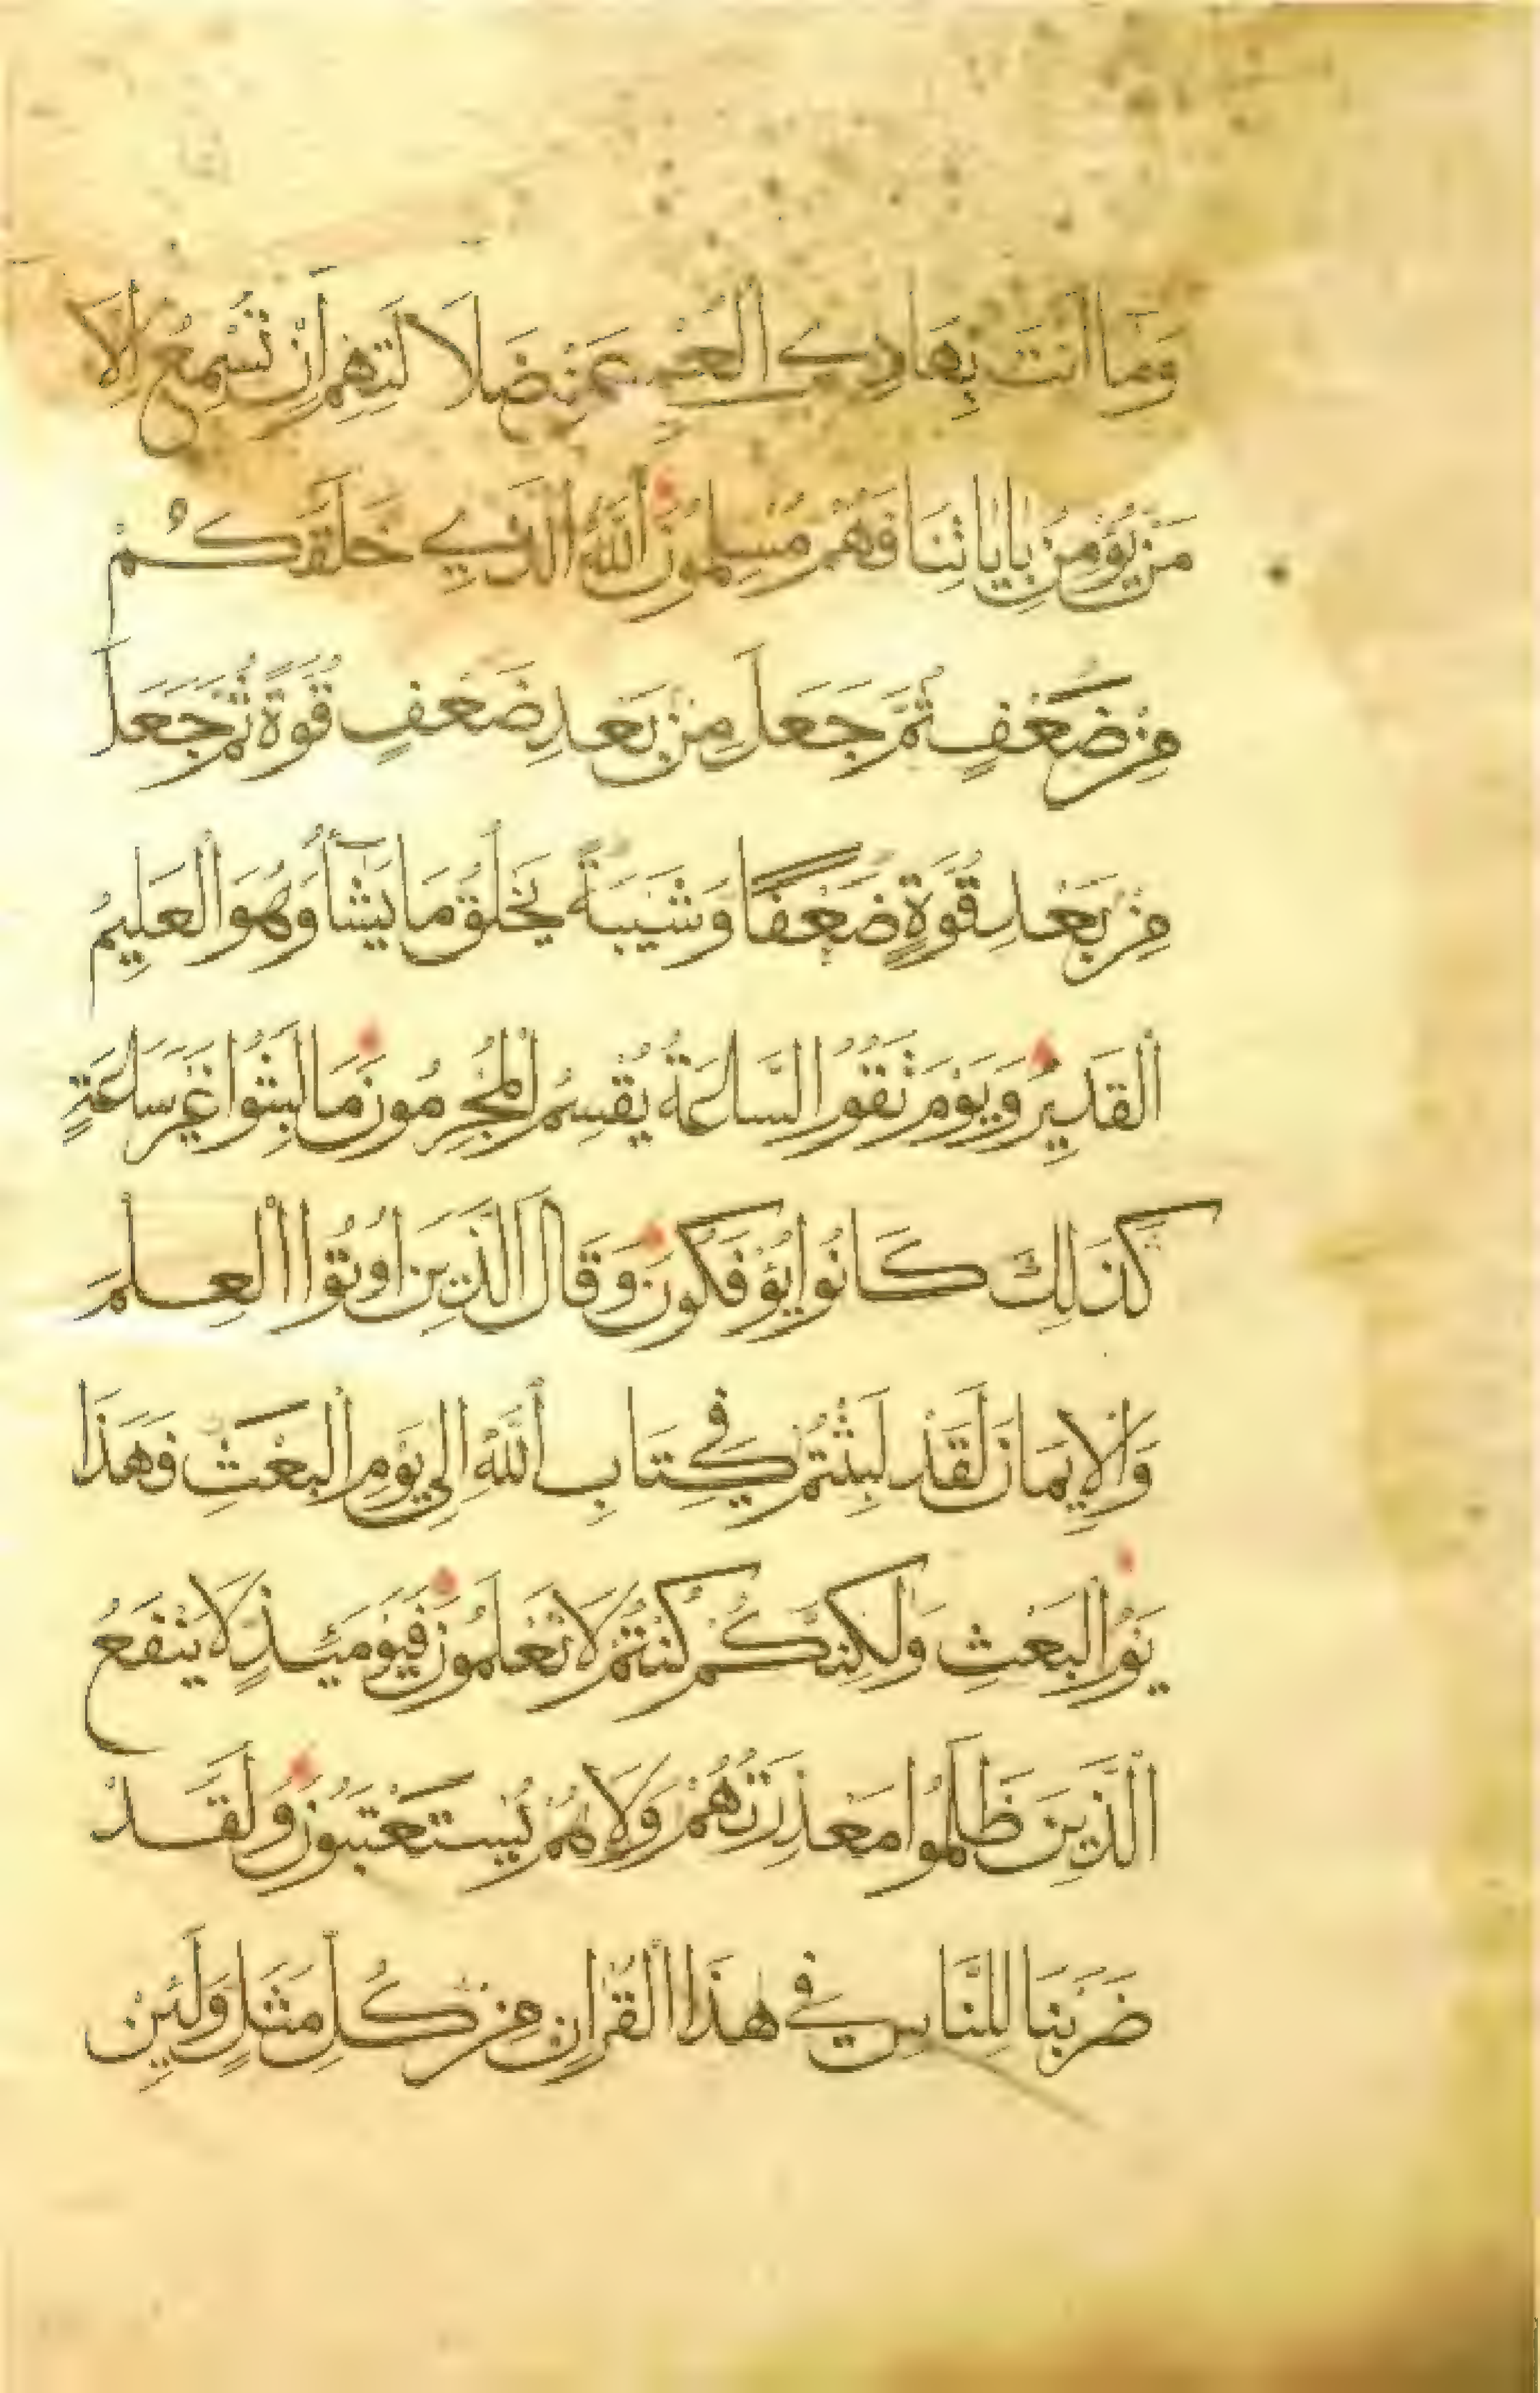 وَمَا أَنْتَ بِهَادِي الْعُمْيِ عَنْ ضَلَالَتِهِمْ إِنْ تُسْمِعُ إِلَّا
مَنْ يُؤْمِنُ بِايَاتِنَا فَهُمْ مُسْلِمُونَ اللَّهُ الَّذِي خَلَقَكُمْ
مِنْ ضَعْفٍ ثُمَّ جَعَلَ مِنْ بَعْدِ ضَعْفٍ قُوَّةً ثُمَّ جَعَلَ
مِنْ بَعْدِ قُوَّةٍ ضَعْفًا وَشَيْبَةً يَخْلُقُ مَا يَشَآءُ وَهُوَ الْعَلِيمُ
الْقَدِيرُ وَيَوْمَ تَقُومُ السَّاعَةُ يُقْسِمُ الْمُجْرِمُونَ مَا لَبِثُوا غَيْرَ سَاعَةٍ
كَذَلِكَ كَانُوا يُؤْفَكُونَ وَقَالَ الَّذِينَ أُوتُوا الْعِلْمَ
وَالْإِيمَانَ لَقَدْ لَبِثْتُمْ فِي كِتَابِ اللَّهِ إِلَى يَوْمِ الْبَعْثِ فَهَذَا
يَوْمُ الْبَعْثِ وَلَكِنَّكُمْ كُنْتُمْ لَا تَعْلَمُونَ فَيَوْمَئِذٍ لَا يَنْفَعُ
الَّذِينَ ظَلَمُوا مَعْذِرَتُهُمْ وَلَا هُمْ يُسْتَعْتَبُونَ وَلَقَدْ
ضَرَبْنَا لِلنَّاسِ فِي هَذَا الْقُرْانِ مِنْ كُلِّ مَثَلٍ وَلَئِنْ